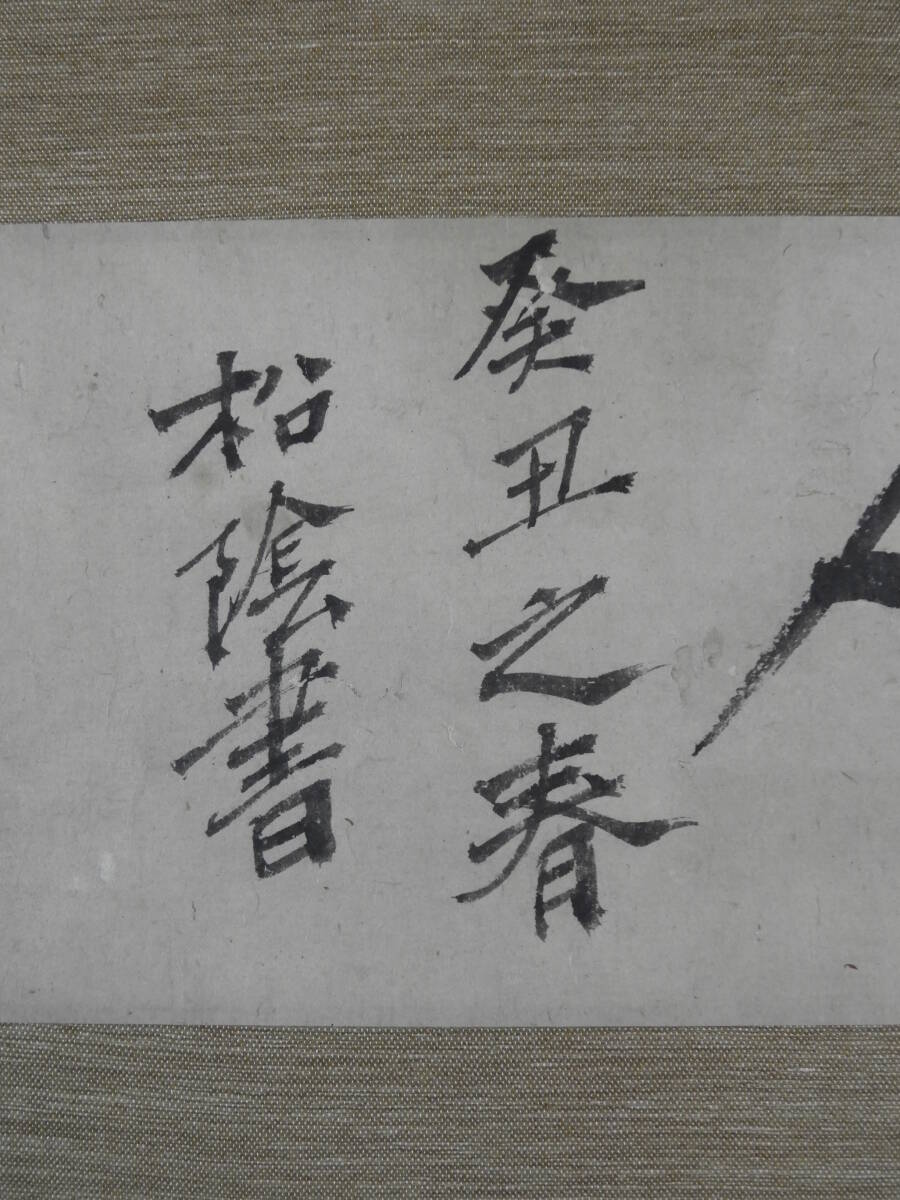 癸丑之春
松陰書